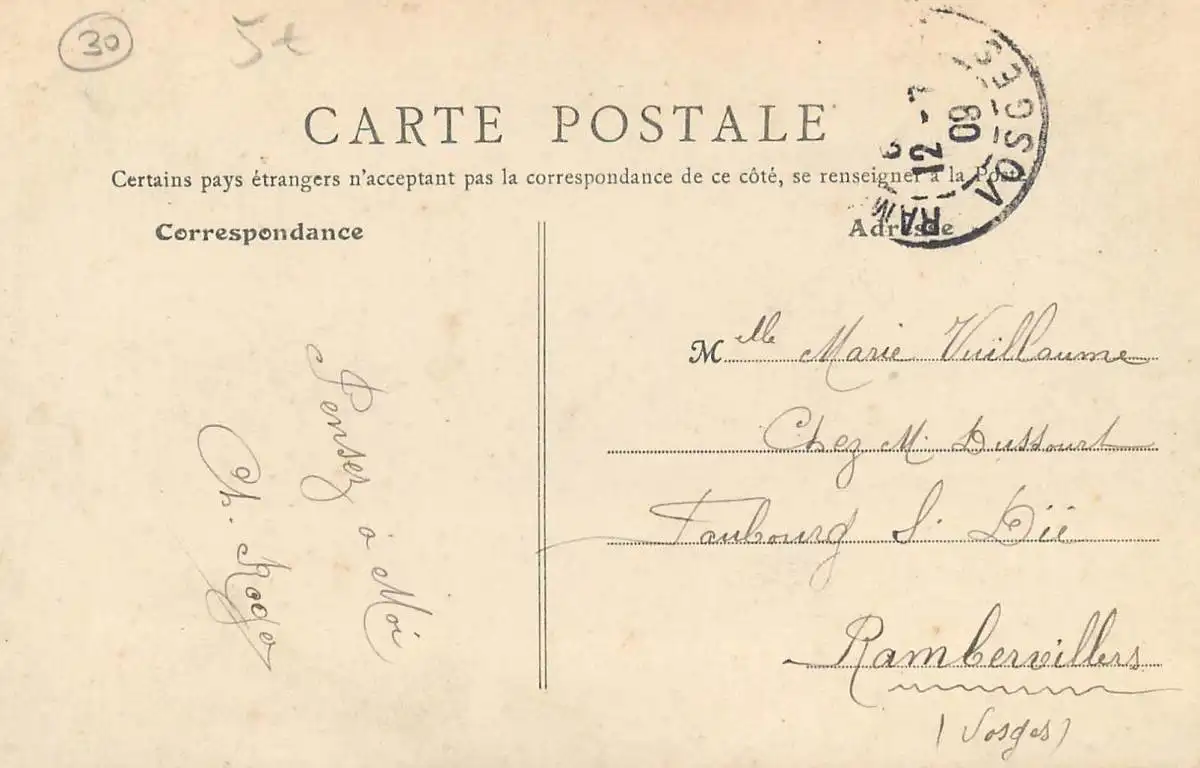 30
5€
CARTE POSTALE
Certains pays étrangers n'acceptant pas la correspondance de ce côté, se renseigner à la Poste
Correspondance
Adresse
RAM
VOSGES
12 - 7
09
Pensez à Moi
Ch. Roger
Melle Marie Vuillaume
Chez M. Dussourt
Faubourg St Dié
Rambervillers
(Vosges)